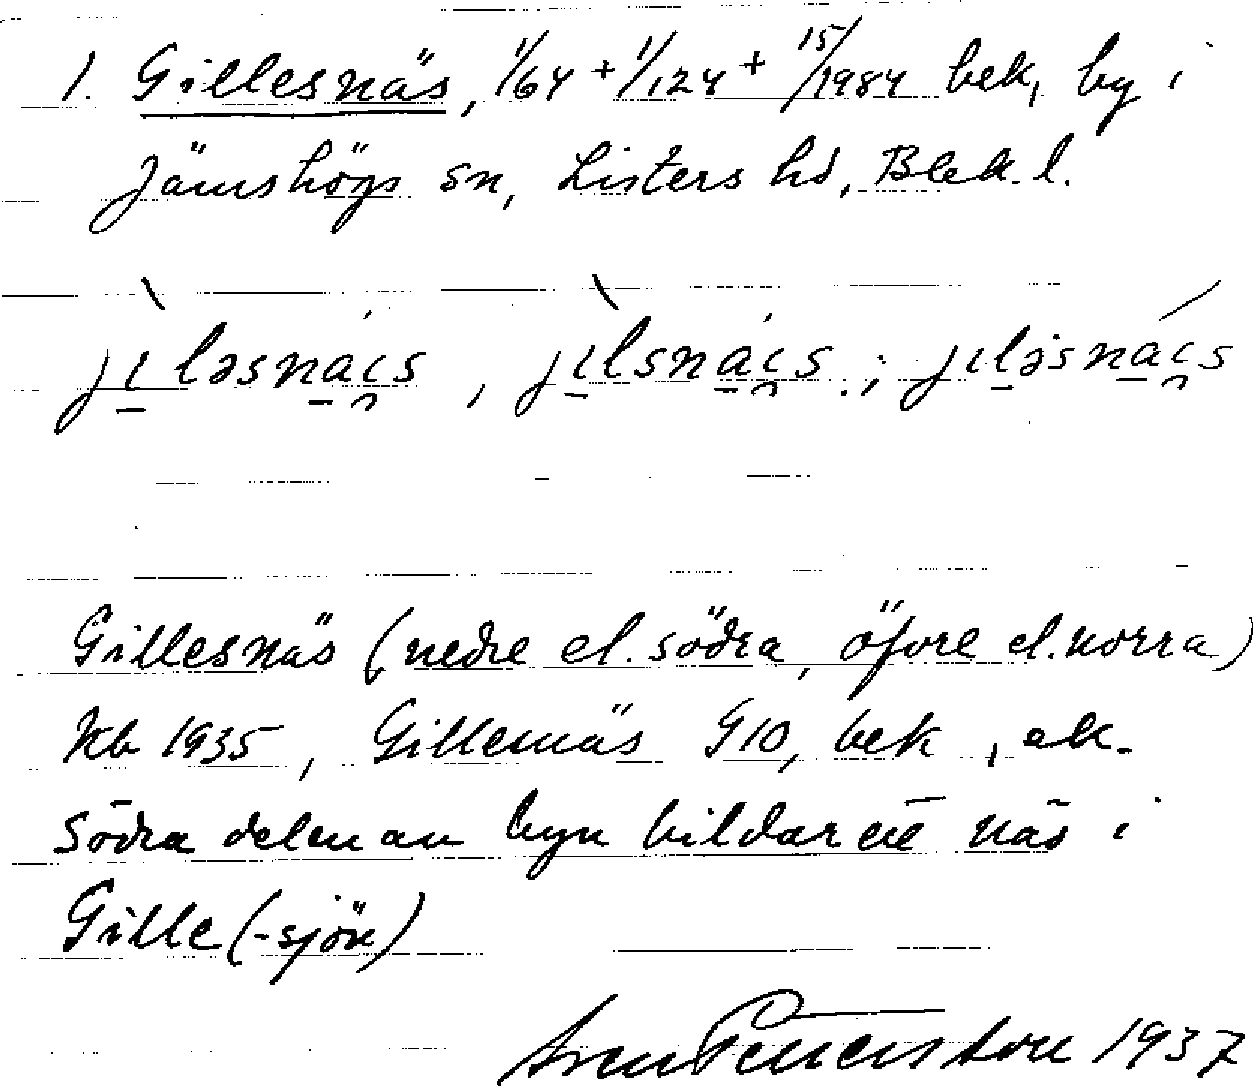 1. Gillesnäs, 1/64 + 1/124 + 15/1984 bek, by i
Jämshögs sn, Listers hd, Blek. l.
jìləsnáis, jìlsnáis.; jıləsnáis
Gillesnäs (nedre el. södra, öfvre el. norra)
Kb 1935, Gillesnäs G10, bek, ek.
Södra delen av byn bildar ett näs i
Gille (-sjön)
Sven Petersson 1937